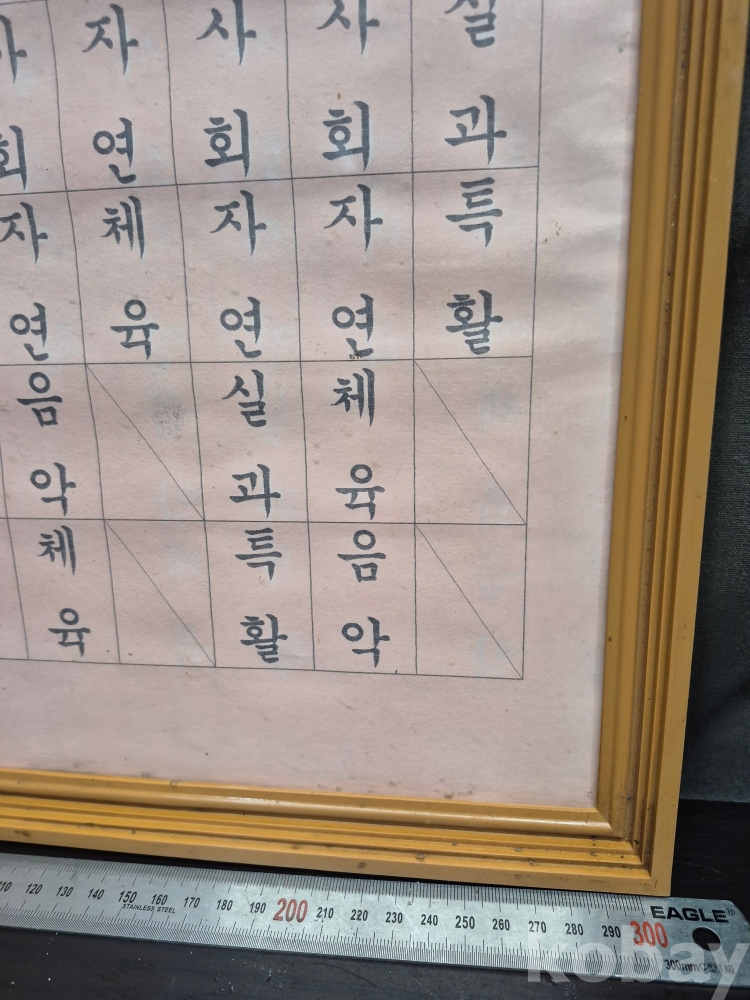 자 사 사 실
회 연 회 회 과
자 체 자 자 특
연 육 연 연 활
음 실 체
악 과 육
체 특 음
육 활 악
110 120 130 140 150 160 170 180 190 200 210 220 230 240 250 260 270 280 290 300
STAINLESS STEEL
EAGLE®
300mm
kobay